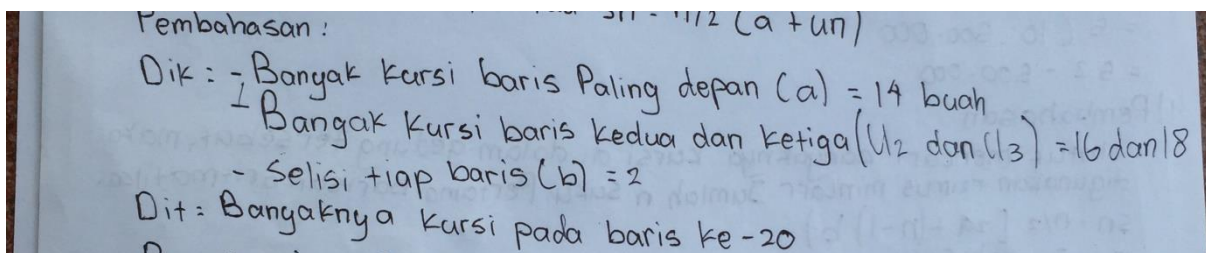 Pembahasan :
Sn = n/2 (a + un)
Dik : - Banyak Kursi baris Paling depan (a) = 14 buah
- Bangak Kursi baris kedua dan ketiga (U2 dan U3) = 16 dan 18
- Selisi tiap baris (b) = 2
Dit = Bangaknya kursi pada baris ke-20